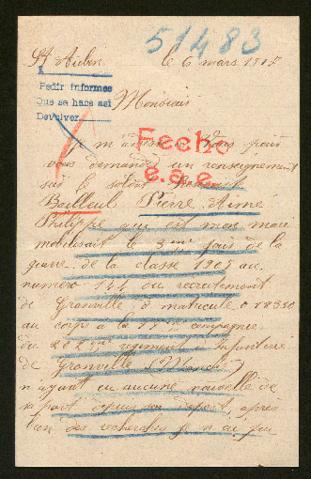 51483
St Aubin le 6 mars 1915
Pedir informes
Que se hace asi
Devolver
Monsieur
Fecha
e.a.e.
Je m'adresse à vous pour
vous demander un renseignement
sur le soldat
Bailleul Pierre Aimé
Philippe qui est mon mari
mobilisait le 3me jour de la
guerre de la classe 1905 au
numero 144 du recrutement
de Granville matricule
au corps a la compagnie
du regiment infanterie
de Granville (Manche)
n'ayant eu aucune nouvelle de
sa part depuis son depart, après
bien des recherches je n'ai pu